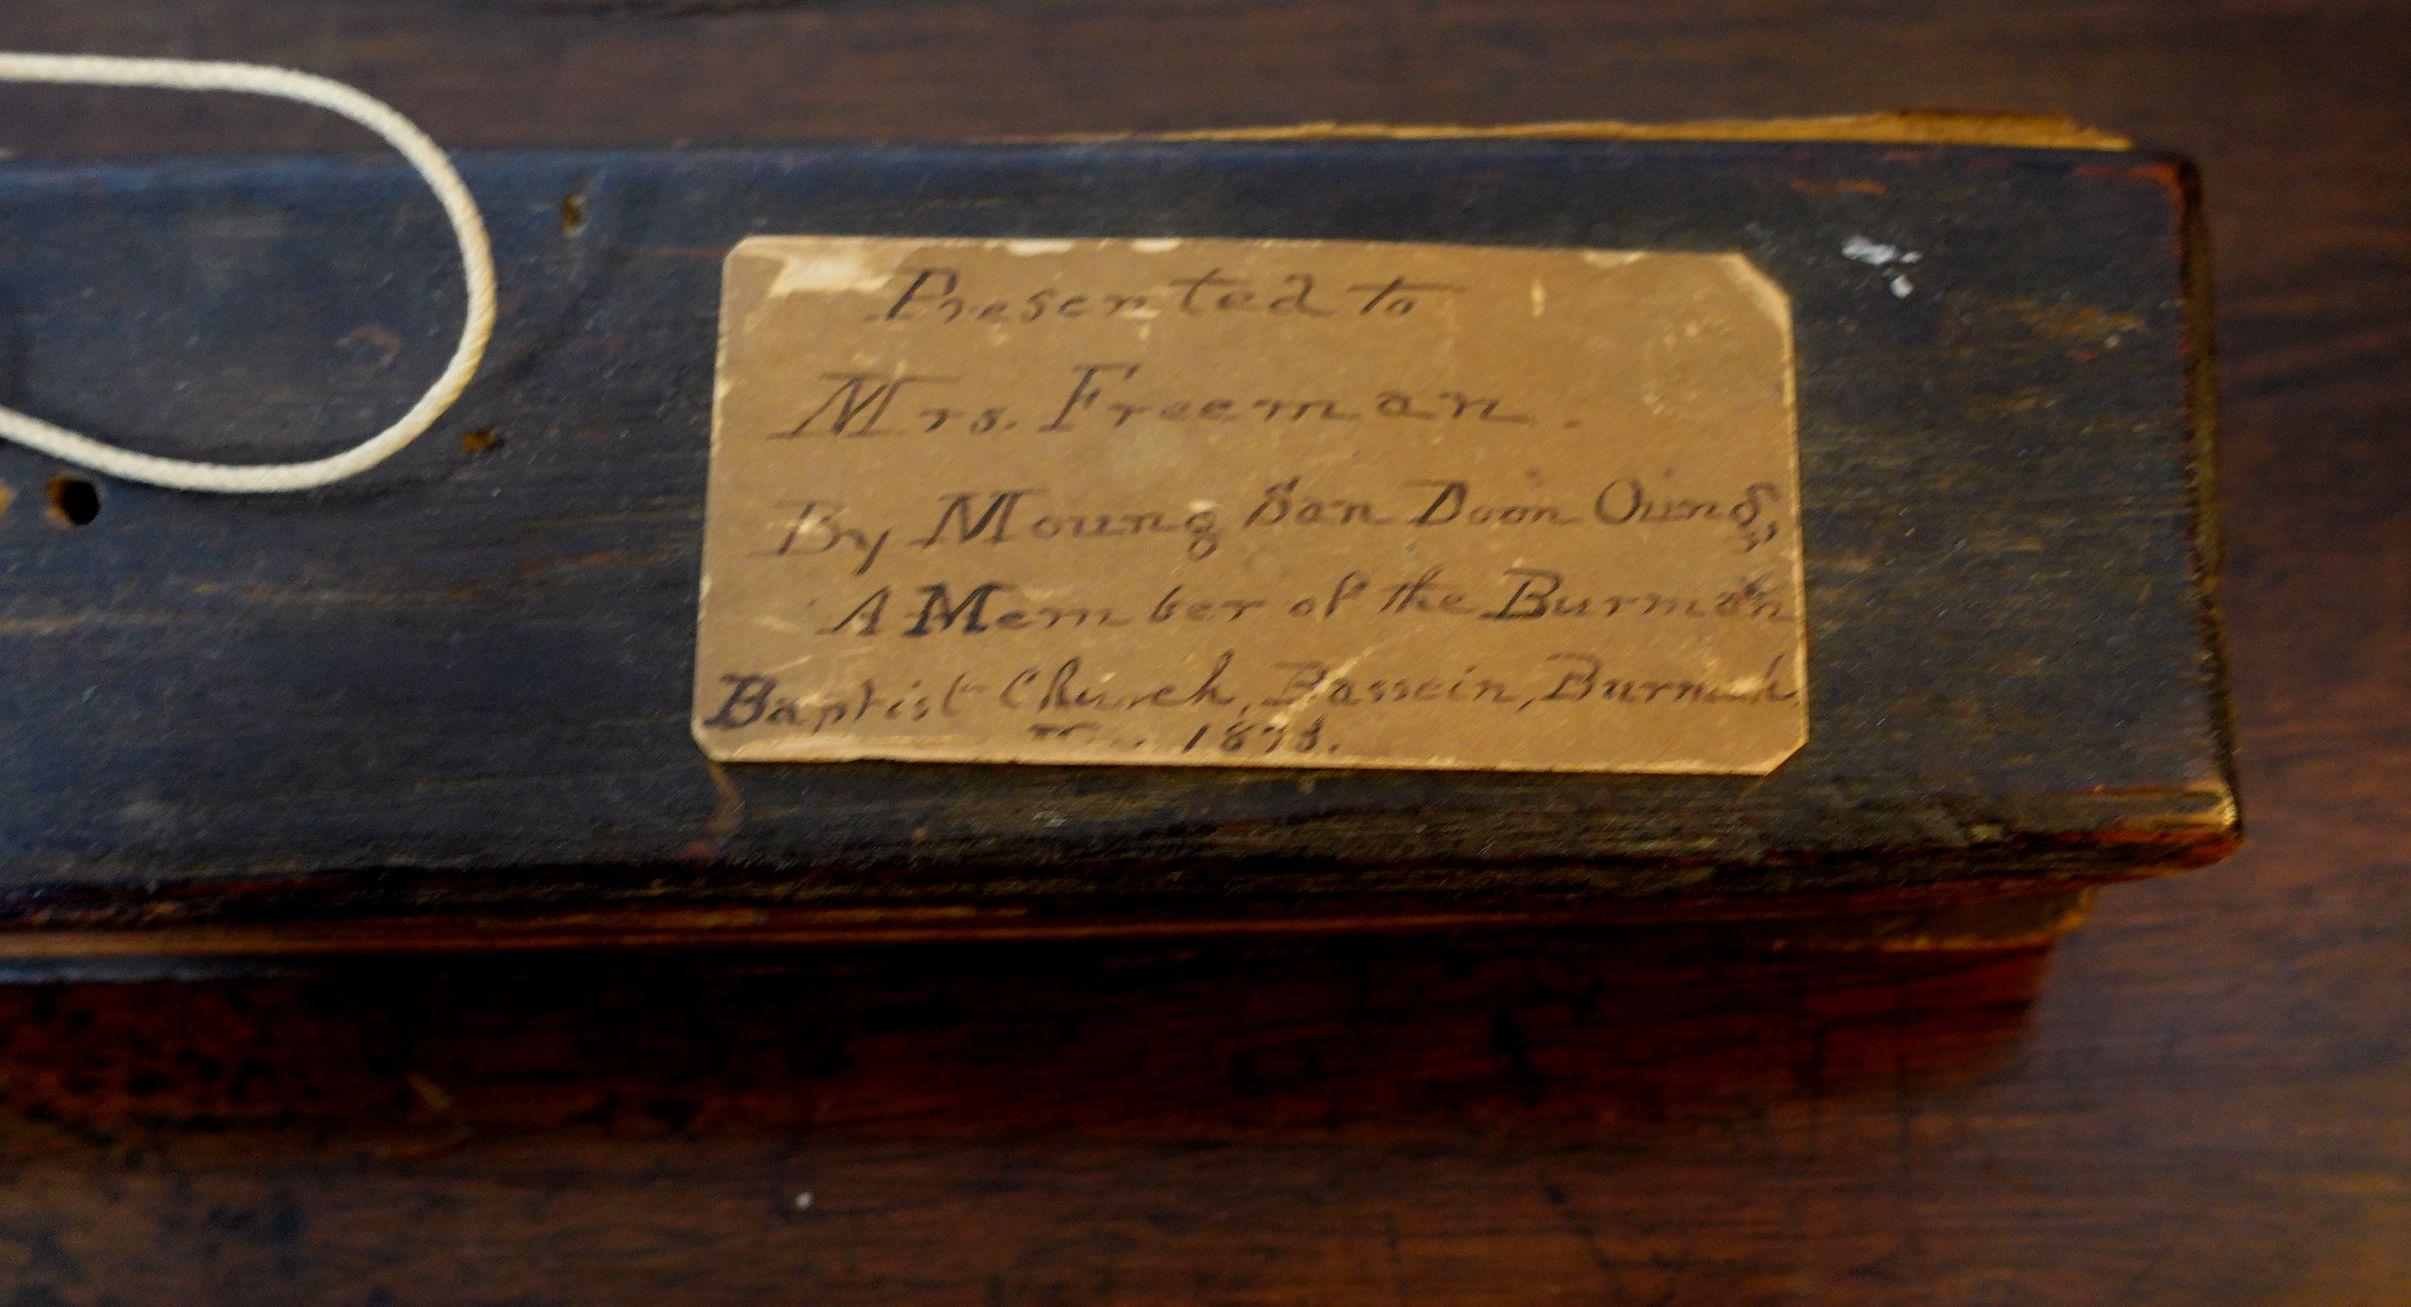 Presented to
Mrs. Freeman.
By Moung San Doon Oung,
A Member of the Burman
Baptist Church, Bassein, Burmah
1873.